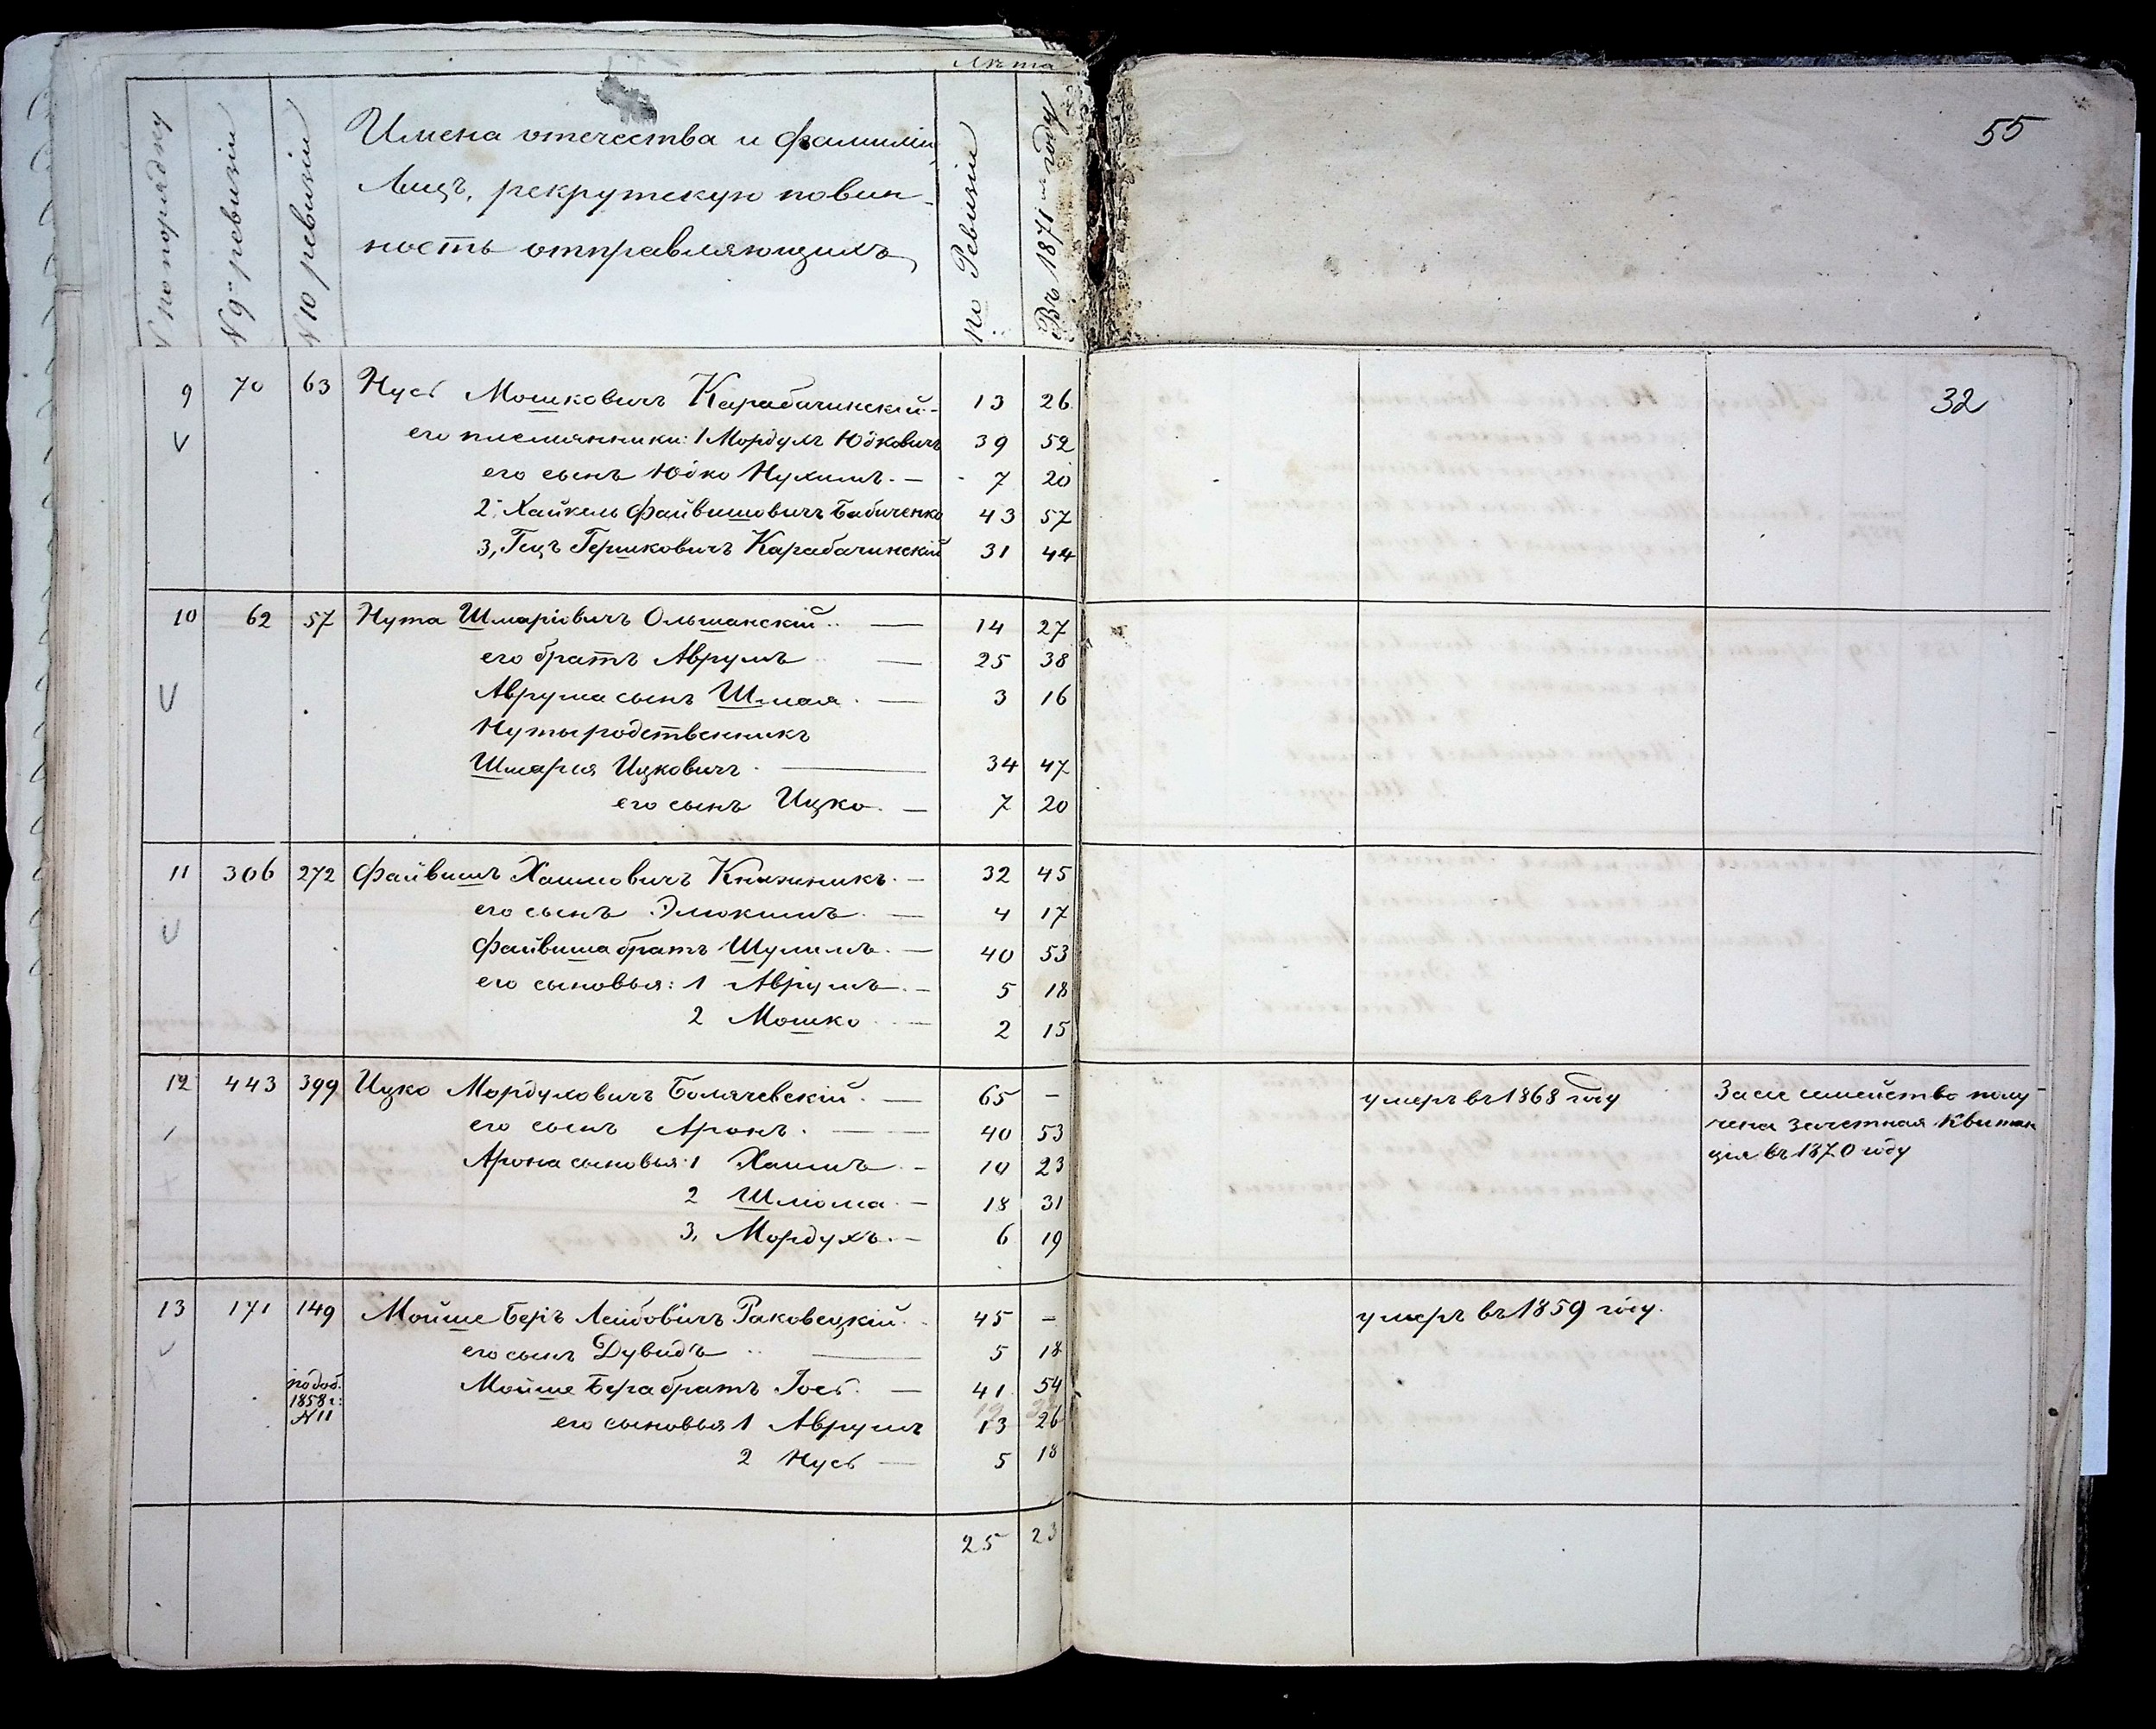 Лѣта
№ по порядку
№ 9й ревизіи
№ 10 ревизіи
Имена отечества и фамиліи
Лицъ, рекрутскую повин-
ность отправляющихъ
по Ревизіи
Въ 1871м году
55
32
9 70 63 Нусъ Мошковичъ Карабачинскій - 13 26
его племянники: 1 Мордухъ Юдковичъ 39 52
его сынъ Юдко Нухимъ. — 7 20
2. Хайкель Файвишовичъ Бабиченко 43 57
3, Гецъ Гершковичъ Карабачинскій 31 44
10 62 57 Нута Шмаріовичъ Ольшанскій — 14 27
его братъ Аврумъ — 25 38
Аврума сынъ Шмая. — 3 16
Нуты родственникъ
Шмарья Ицковичъ — 34 47
его сынъ Ицко. — 7 20
11 306 272 Файвишъ Хаимовичъ Книжникъ. — 32 45
его сынъ Элюкимъ. — 4 17
Файвиша братъ Шулимъ. — 40 53
его сыновья: 1 Аврумъ. — 5 18
2 Мошко — 2 15
12 443 399 Ицко Мордуховичъ Болячевскій. — 65 - умеръ въ 1868 году За се семейство полу-
его сынъ Аронъ. — 40 53 чена зачетная Квитан
Арона сыновья: 1 Хаимъ — 10 23 ція въ 1870 году
2 Шлиома — 18 31
3, Мордухъ. — 6 19
13 171 149 Мойше Беръ Лейбовичъ Раковецкій. 45 - умеръ въ 1859 году.
его сынъ Дувидъ — 5 18
по доб. 1858 г: №11 Мойше Бера братъ Іосъ. — 41 54
его сыновья 1 Аврумъ 13 26
2 Нусъ — 5 18
25 23